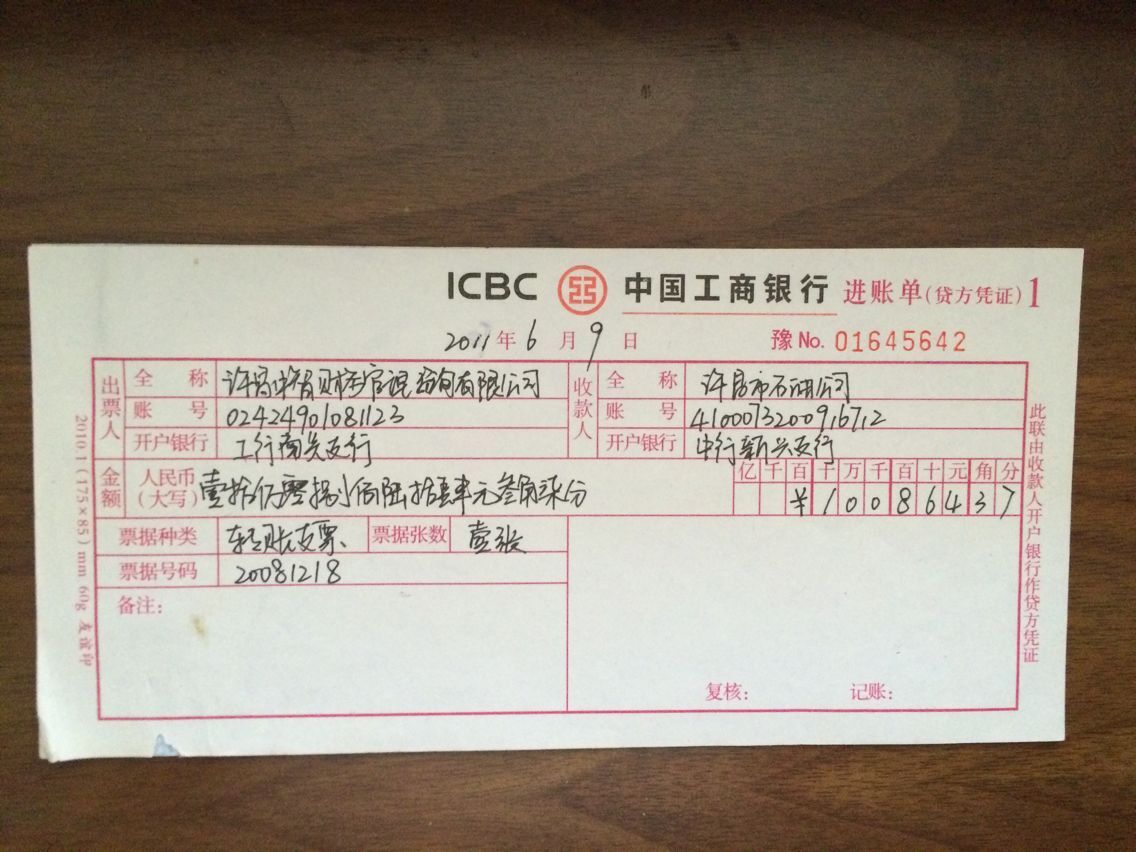 ICBC 中国工商银行 进账单(贷方凭证)1
2011年6月9日 豫No. 01645642
出票人 全称 收款人 全称 许昌市石油公司
账号 0242490108 1123 账号 4100073200916712
开户银行 工行南关支行 开户银行 中行新兴支行
亿千百十万千百十元角分
金额 人民币(大写) 元叁角柒分 ¥10086437
票据种类 转账支票 票据张数 壹张
票据号码 20081218
备注:
复核: 记账:
此联由收款人开户银行作贷方凭证
2010.1(175×85)mm 60g 友谊印